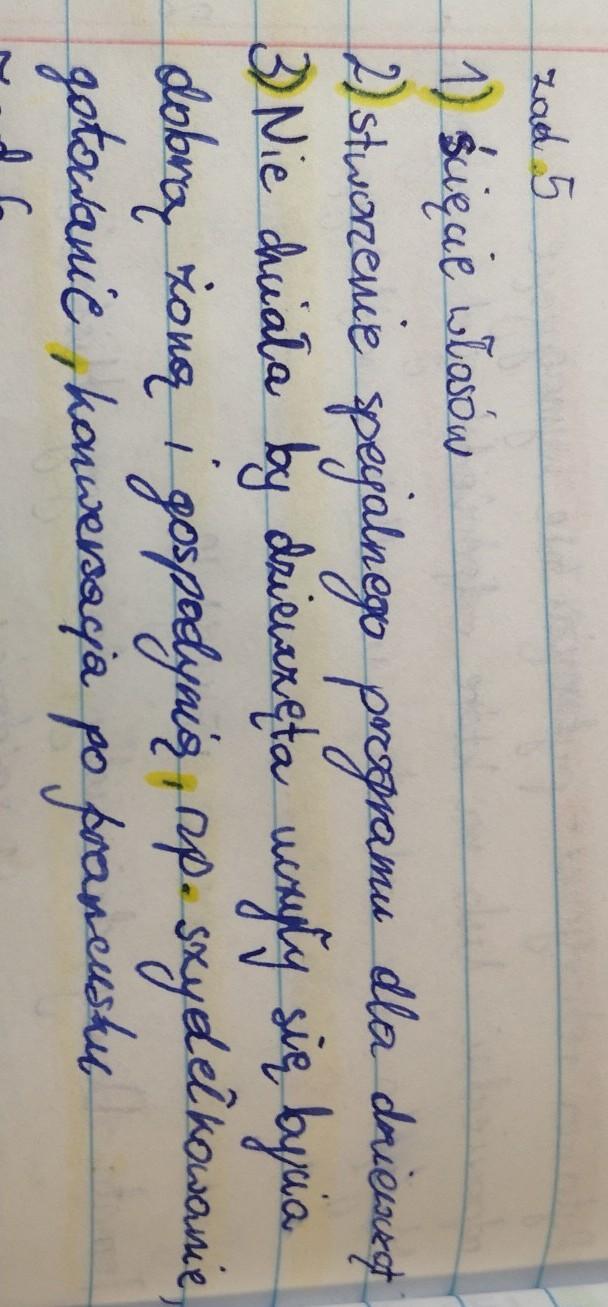 zad.5
1) ścięcie włosów
2) stworzenie specjalnego programu dla dziewcząt
3) Nie chciała by dziewczęta uczyły się bycia
dobrą żoną i gospodynią, np. szydełkowanie,
gotowanie, konwersacja po francusku